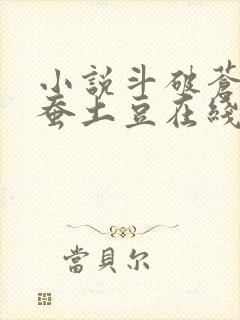 小説斗破蒼
蚕土豆在綫
當貝尔